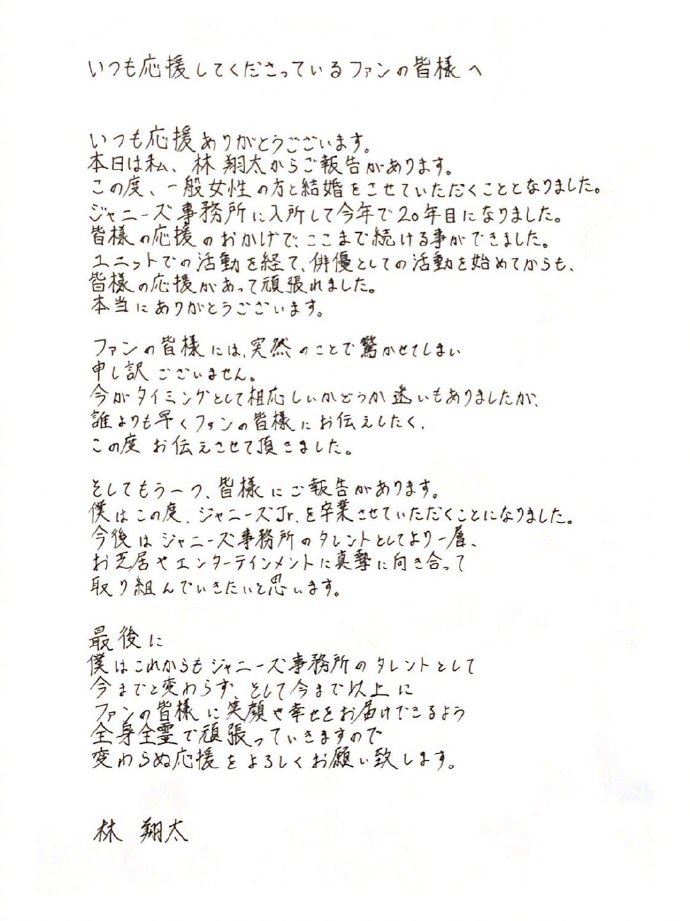 いつも応援してくださっているファンの皆様へ
いつも応援ありがとうございます。
本日は私、林 翔太からご報告があります。
この度、一般女性の方と結婚をさせていただくこととなりました。
ジャニーズ事務所に入所して今年で20年目になりました。
皆様の応援のおかげで、ここまで続ける事ができました。
ユニットでの活動を経て、俳優としての活動を始めてからも、
皆様の応援があって頑張れました。
本当にありがとうございます。
ファンの皆様には、突然のことで驚かせてしまい
申し訳ございません。
今がタイミングとして相応しいかどうか迷いもありましたが、
誰よりも早くファンの皆様にお伝えしたく、
この度お伝えさせて頂きました。
そしてもう一つ、皆様にご報告があります。
僕はこの度、ジャニーズJr.を卒業させていただくことになりました。
今後はジャニーズ事務所のタレントとしてより一層、
お芝居やエンターテインメントに真摯に向き合って
取り組んでいきたいと思います。
最後に
僕はこれからもジャニーズ事務所のタレントとして
今までと変わらず、そして今まで以上に
ファンの皆様に笑顔や幸せをお届けできるよう
全身全霊で頑張っていきますので
変わらぬ応援をよろしくお願い致します。
林 翔太